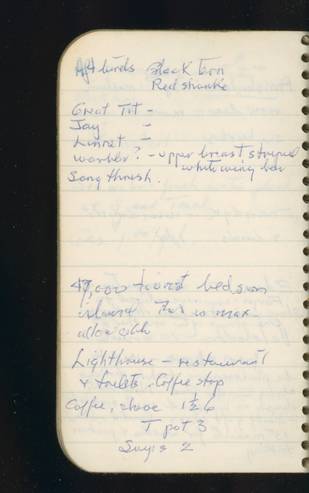 Aft birds Black tern
Red shanke
Great Tit -
Jay -
Linnet -
warbler? - upper breast striped
white wing bar
Song thrush.
47,000 tourist beds on
island This is max
allowable
Lighthouse - restaurant
& toilets. Coffee stop
Coffee, choc 1 1/2 6
T pot 3
2